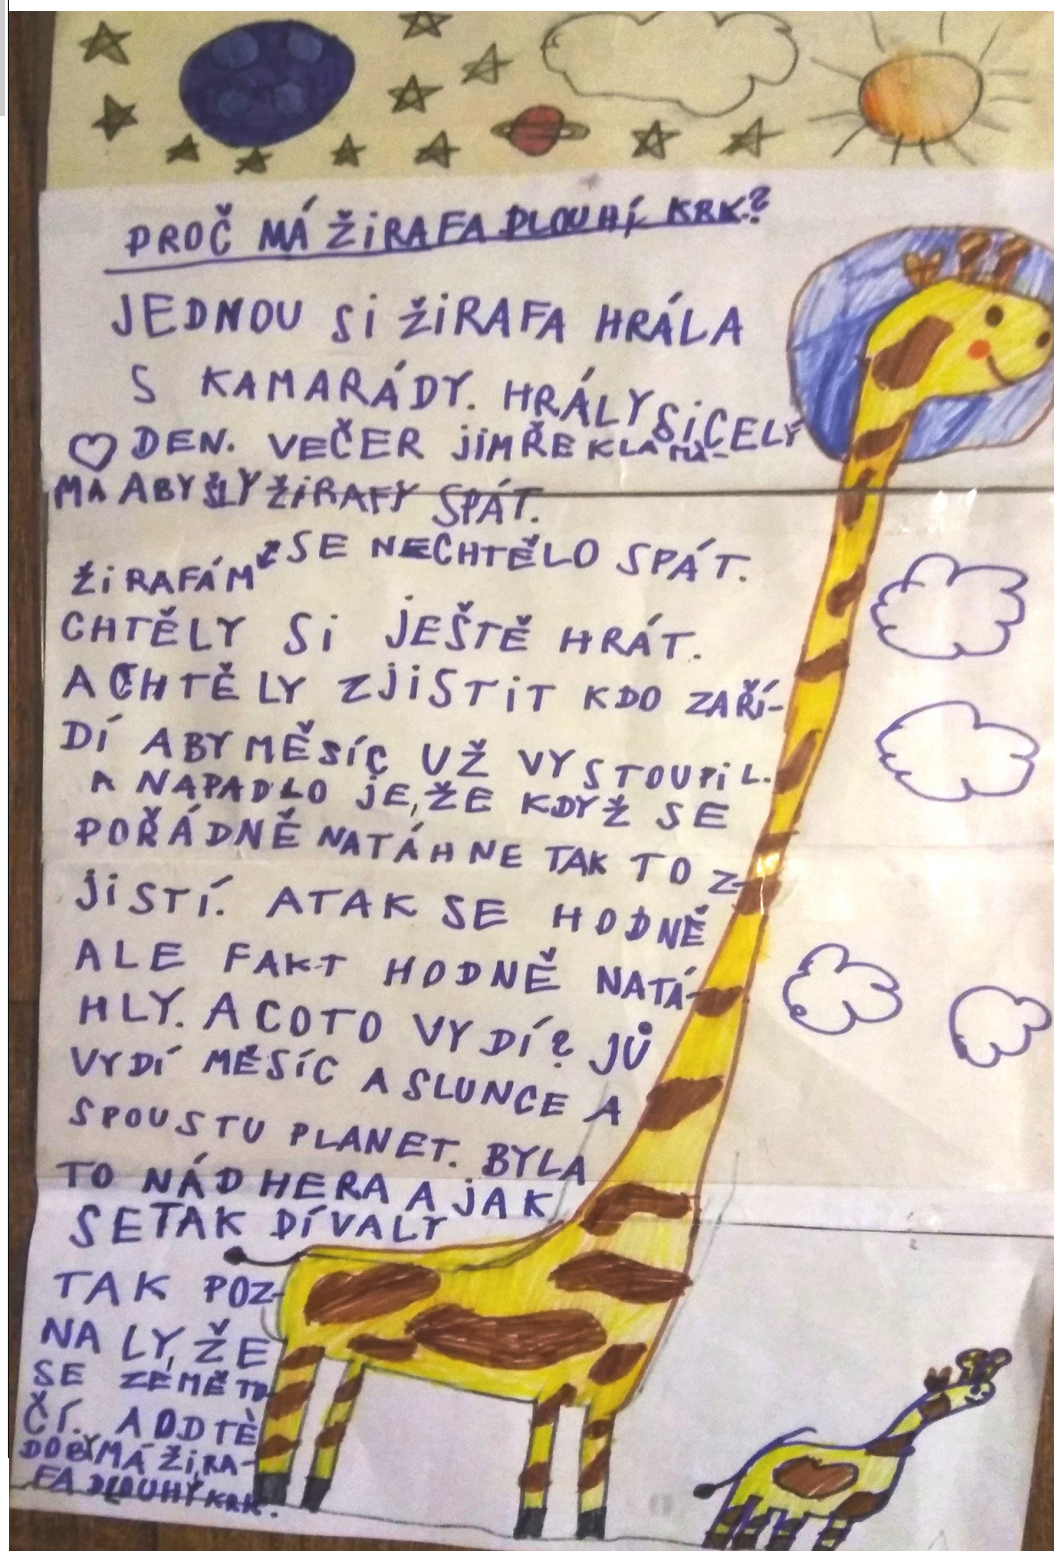 PROČ MÁ ŽIRAFA DLOUHÍ KRK?
JEDNOU SI ŽIRAFA HRÁLA
S KAMARÁDY. HRÁLY SI CELÝ
DEN. VEČER JIM ŘEKLA MÁ-
MA ABY ŠLY ŽIRAFY SPÁT.
ŽIRAFÁM SE NECHTĚLO SPÁT.
CHTĚLY SI JEŠTĚ HRÁT.
A CHTĚLY ZJISTIT KDO ZAŘÍ-
DÍ ABY MĚSÍC UŽ VYSTOUPIL.
A NAPADLO JE, ŽE KDYŽ SE
POŘÁDNĚ NATÁHNE TAK TO Z-
JISTÍ. A TAK SE HODNĚ
ALE FAKT HODNĚ NATÁ-
HLY. A COTO VYDÍ? JŮ
VYDÍ MĚSÍC A SLUNCE A
SPOUSTU PLANET. BYLA
TO NÁDHERA A JAK
SE TAK DÍVALY
TAK POZ-
NALY, ŽE
SE ZEMĚ TO-
ČÍ. A OD TÉ
DOBY MÁ ŽIRA-
FA DLOUHÝ KRK.